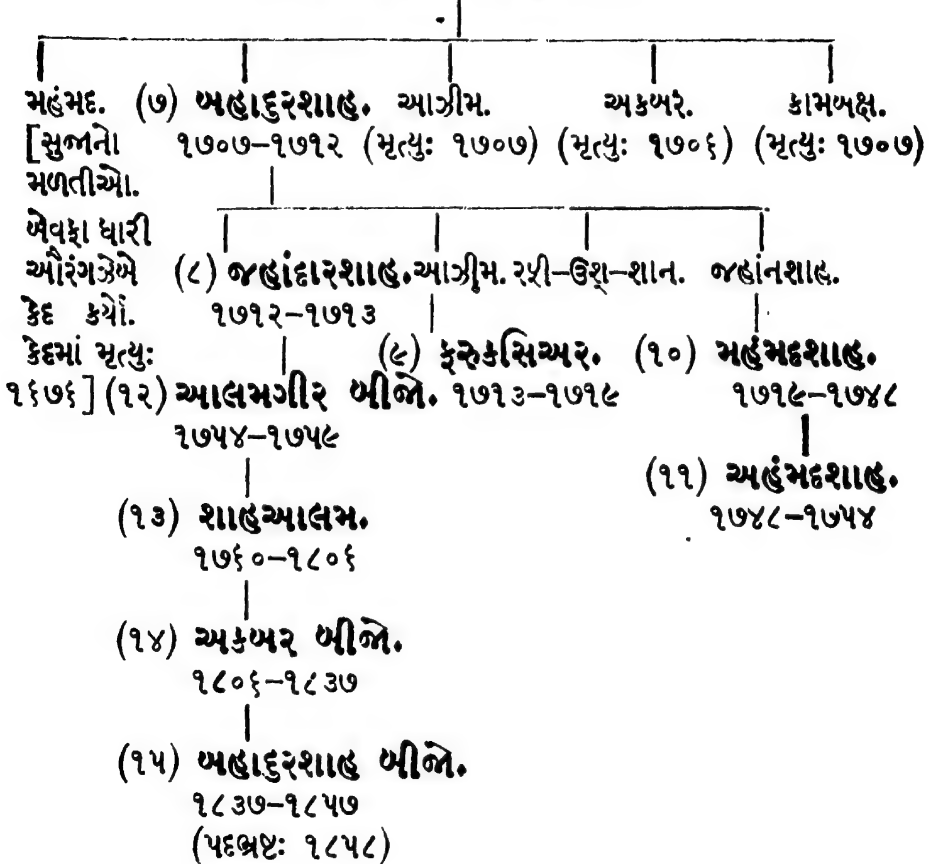 મહંમદ. (૭) બહાદુરશાહ. આઝીમ. અકબર. કામબક્ષ.
[સુજાનો ૧૭૦૭–૧૭૧૨ (મૃત્યુઃ ૧૭૦૭) (મૃત્યુઃ ૧૭૦૬) (મૃત્યુઃ ૧૭૦૭)
મળતીઓ.
બેવફા ધારી
ઔરંગઝેબે (૮) જહાંદારશાહ. આઝીમ. રફી–ઉશ્–શાન. જહાંનશાહ.
કેદ કર્યો. ૧૭૧૨–૧૭૧૩
કેદમાં મૃત્યુઃ (૯) ફરુકસિઅર. (૧૦) મહંમદશાહ.
૧૬૭૬] (૧૨) આલમગીર બીજો. ૧૭૧૩–૧૭૧૯ ૧૭૧૯–૧૭૪૮
૧૭૫૪–૧૭૫૯
(૧૧) અહંમદશાહ.
(૧૩) શાહઆલમ. ૧૭૪૮–૧૭૫૪
૧૭૬૦–૧૮૦૬
(૧૪) અકબર બીજો.
૧૮૦૬–૧૮૩૭
(૧૫) બહાદુરશાહ બીજો.
૧૮૩૭–૧૮૫૭
(પદભ્રષ્ટઃ ૧૮૫૮)